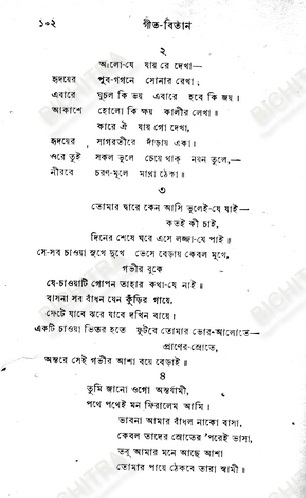 ১০২
গীত-বিতান
২
আলো-যে যায় রে দেখা—
হৃদয়ের পূব-গগনে সোনার রেখা।
এবারে ঘুচল কি ভয় এবারে হবে কি জয়।
আকাশে হোলো কি ক্ষয় কালীর লেখা॥
কারে ঐ যায় গো দেখা,
হৃদয়ের সাগরতীরে দাঁড়ায় একা।
ওরে তুই সকল ভুলে চেয়ে থাক্ নয়ন তুলে,—
নীরবে চরণ-মূলে মাথা ঠেকা॥
৩
তোমার দ্বারে কেন আসি ভুলেই-যে যাই—
কতই কী চাই,
দিনের শেষে ঘরে এসে লজ্জা-যে পাই॥
সে-সব চাওয়া সুখে দুখে ভেসে বেড়ায় কেবল মুখে,
গভীর বুকে
যে-চাওয়াটি গোপন তাহার কথা-যে নাই॥
বাসনা সব বাঁধন যেন কুঁড়ির গায়ে,
ফেটে যাবে ঝরে যাবে দখিন বায়ে।
একটি চাওয়া ভিতর হতে ফুটবে তোমার ভোর-আলোতে—
প্রাণের-স্রোতে,
অন্তরে সেই গভীর আশা বয়ে বেড়াই॥
৪
তুমি জানো ওগো অন্তর্যামী,
পথে পথেই মন ফিরালেম আমি।
ভাবনা আমার বাঁধল নাকো বাসা,
কেবল তাদের স্রোতের 'পরেই ভাসা,
তবু আমার মনে আছে আশা
তোমার পায়ে ঠেকবে তারা স্বামী॥
BICHITRA